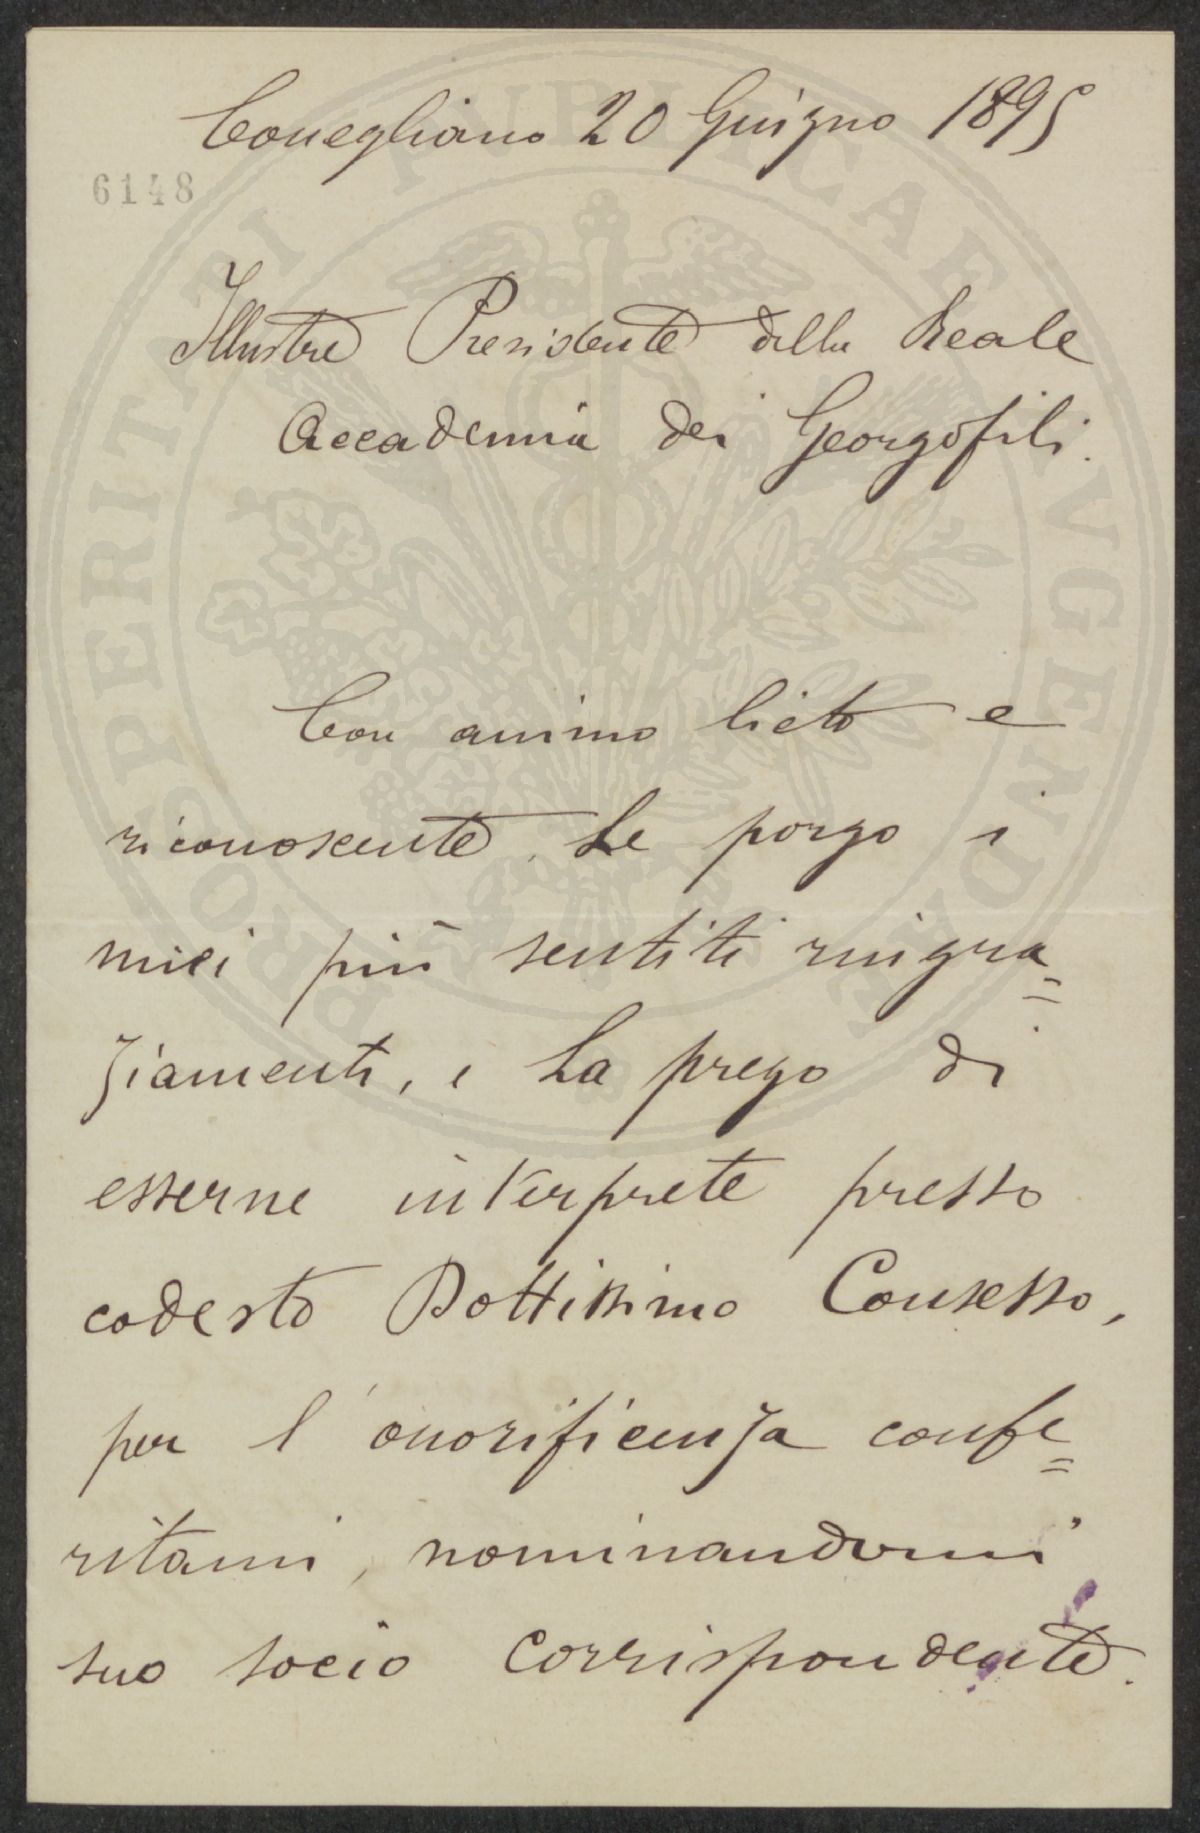 Conegliano 20 Giugno 1895
6148
Illustre Presidente della Reale
Accademia dei Georgofili.
Con animo lieto e
riconoscente Le porgo i
miei più sentiti ringra=
ziamenti, e La prego di
esserne interprete presso
codesto Dottissimo Consesso,
per l'onorificenza confe=
ritami, nominandomi
suo socio corrispondente.
PROSPERITATI PUBLICAE AVGENDAE